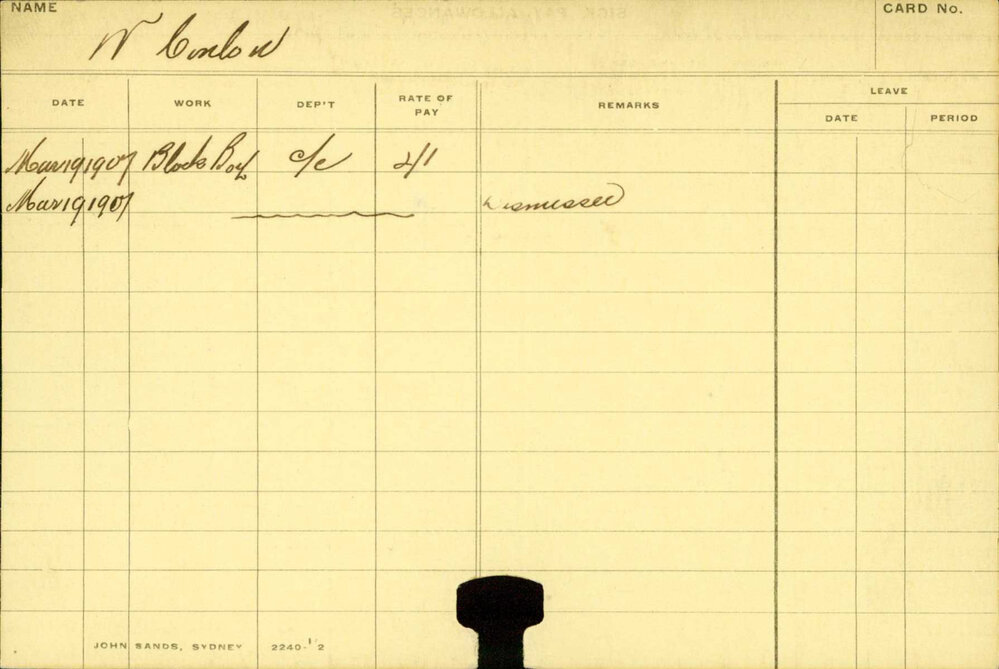 NAME
CARD No.
W Conlon
DATE WORK DEP'T RATE OF PAY REMARKS LEAVE
DATE PERIOD
Mar 19 1907 Block Boy c/c 2/1
Mar 19 1907 Dismissed
JOHN SANDS, SYDNEY 2240-1/2